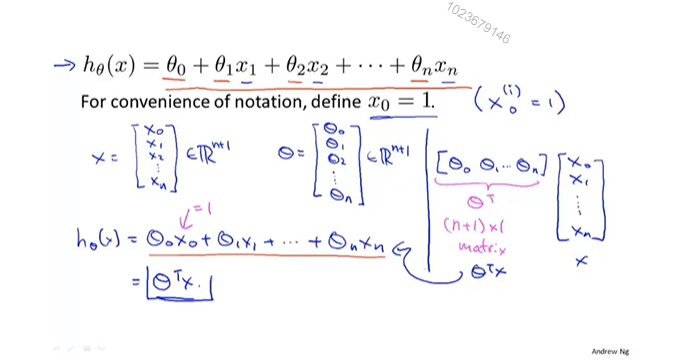 1023679146
→ hθ(x) = θ0 + θ1x1 + θ2x2 + ⋯ + θnxn
For convenience of notation, define x0 = 1. (x0^(i) = 1)
x = [x0 x1 x2 ⋮ xn] ∈ ℝ^(n+1) θ = [θ0 θ1 θ2 ⋮ θn] ∈ ℝ^(n+1) [θ0 θ1 ⋯ θn] [x0 x1 ⋮ xn]
θ^T
(n+1)×1
matrix
x
θ^T x
=1
hθ(x) = θ0x0 + θ1x1 + ⋯ + θnxn
= θ^T x.
Andrew Ng